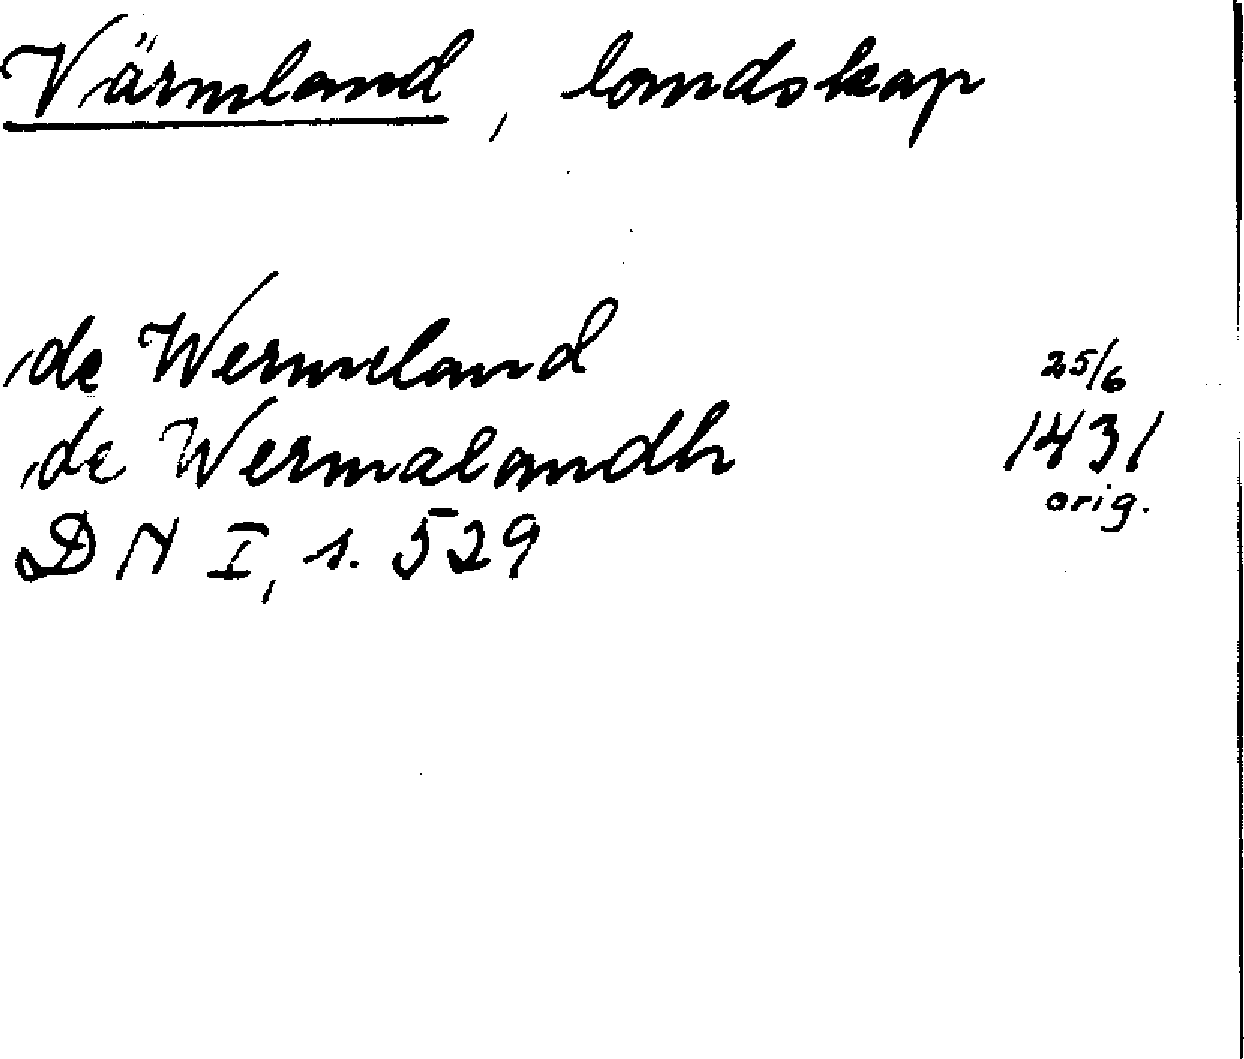 Värmland, landskap
de Wermeland 25/6
de Wermalandh 1431
DN I, s. 529 orig.